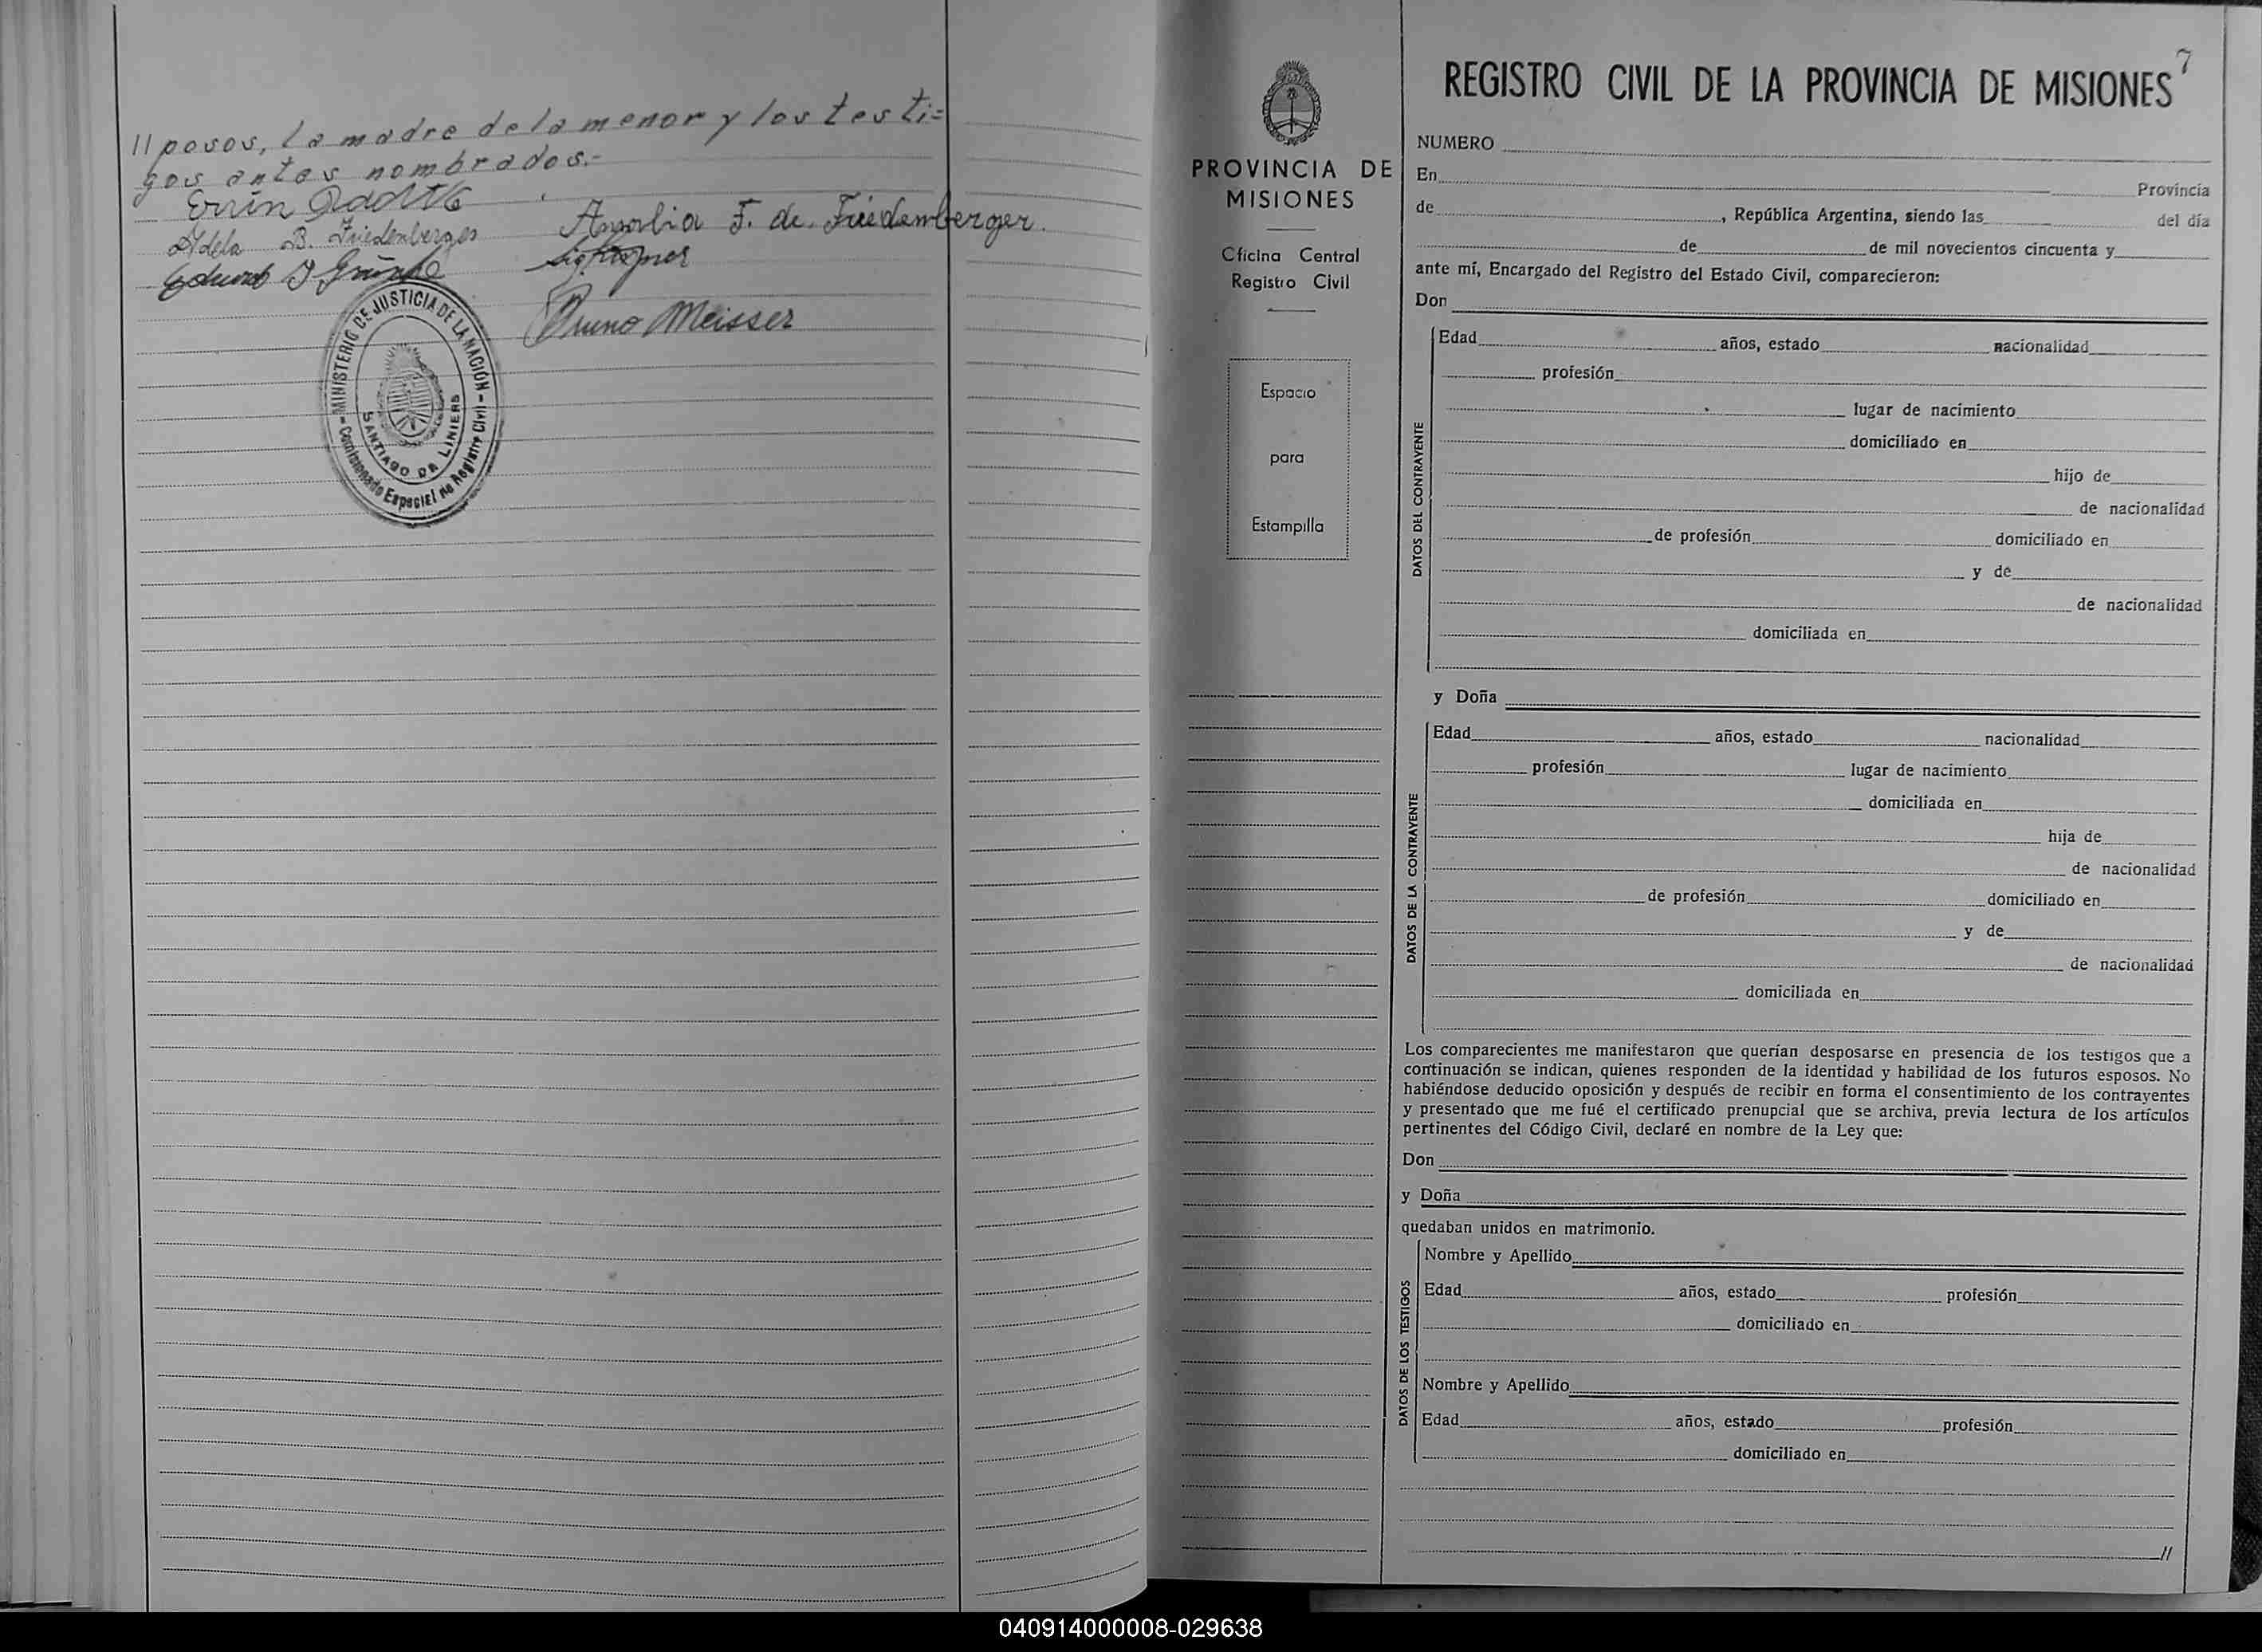 //posos, la madre de la menor y los testi=
gos antes nombrados.-
Erwin
Adela B. Friedenberger
Amalia F. de Friedenberger.
Bruno Meisser
MINISTERIO DE JUSTICIA DE LA NACIÓN
SANTIAGO DE LINIERS
Comisionado Especial de Registro Civil
7
REGISTRO CIVIL DE LA PROVINCIA DE MISIONES
PROVINCIA DE
MISIONES
Oficina Central
Registro Civil
Espacio
para
Estampilla
NUMERO
En Provincia
de , República Argentina, siendo las del día
de de mil novecientos cincuenta y
ante mí, Encargado del Registro del Estado Civil, comparecieron:
Don
DATOS DEL CONTRAYENTE
Edad años, estado nacionalidad
profesión
lugar de nacimiento
domiciliado en
hijo de
de nacionalidad
de profesión domiciliado en
y de
de nacionalidad
domiciliada en
y Doña
DATOS DE LA CONTRAYENTE
Edad años, estado nacionalidad
profesión lugar de nacimiento
domiciliada en
hija de
de nacionalidad
de profesión domiciliado en
y de
de nacionalidad
domiciliada en
Los comparecientes me manifestaron que querían desposarse en presencia de los testigos que a
continuación se indican, quienes responden de la identidad y habilidad de los futuros esposos. No
habiéndose deducido oposición y después de recibir en forma el consentimiento de los contrayentes
y presentado que me fué el certificado prenupcial que se archiva, previa lectura de los artículos
pertinentes del Código Civil, declaré en nombre de la Ley que:
Don
y Doña
quedaban unidos en matrimonio.
DATOS DE LOS TESTIGOS
Nombre y Apellido
Edad años, estado profesión
domiciliado en
Nombre y Apellido
Edad años, estado profesión
domiciliado en
//
040914000008-029638